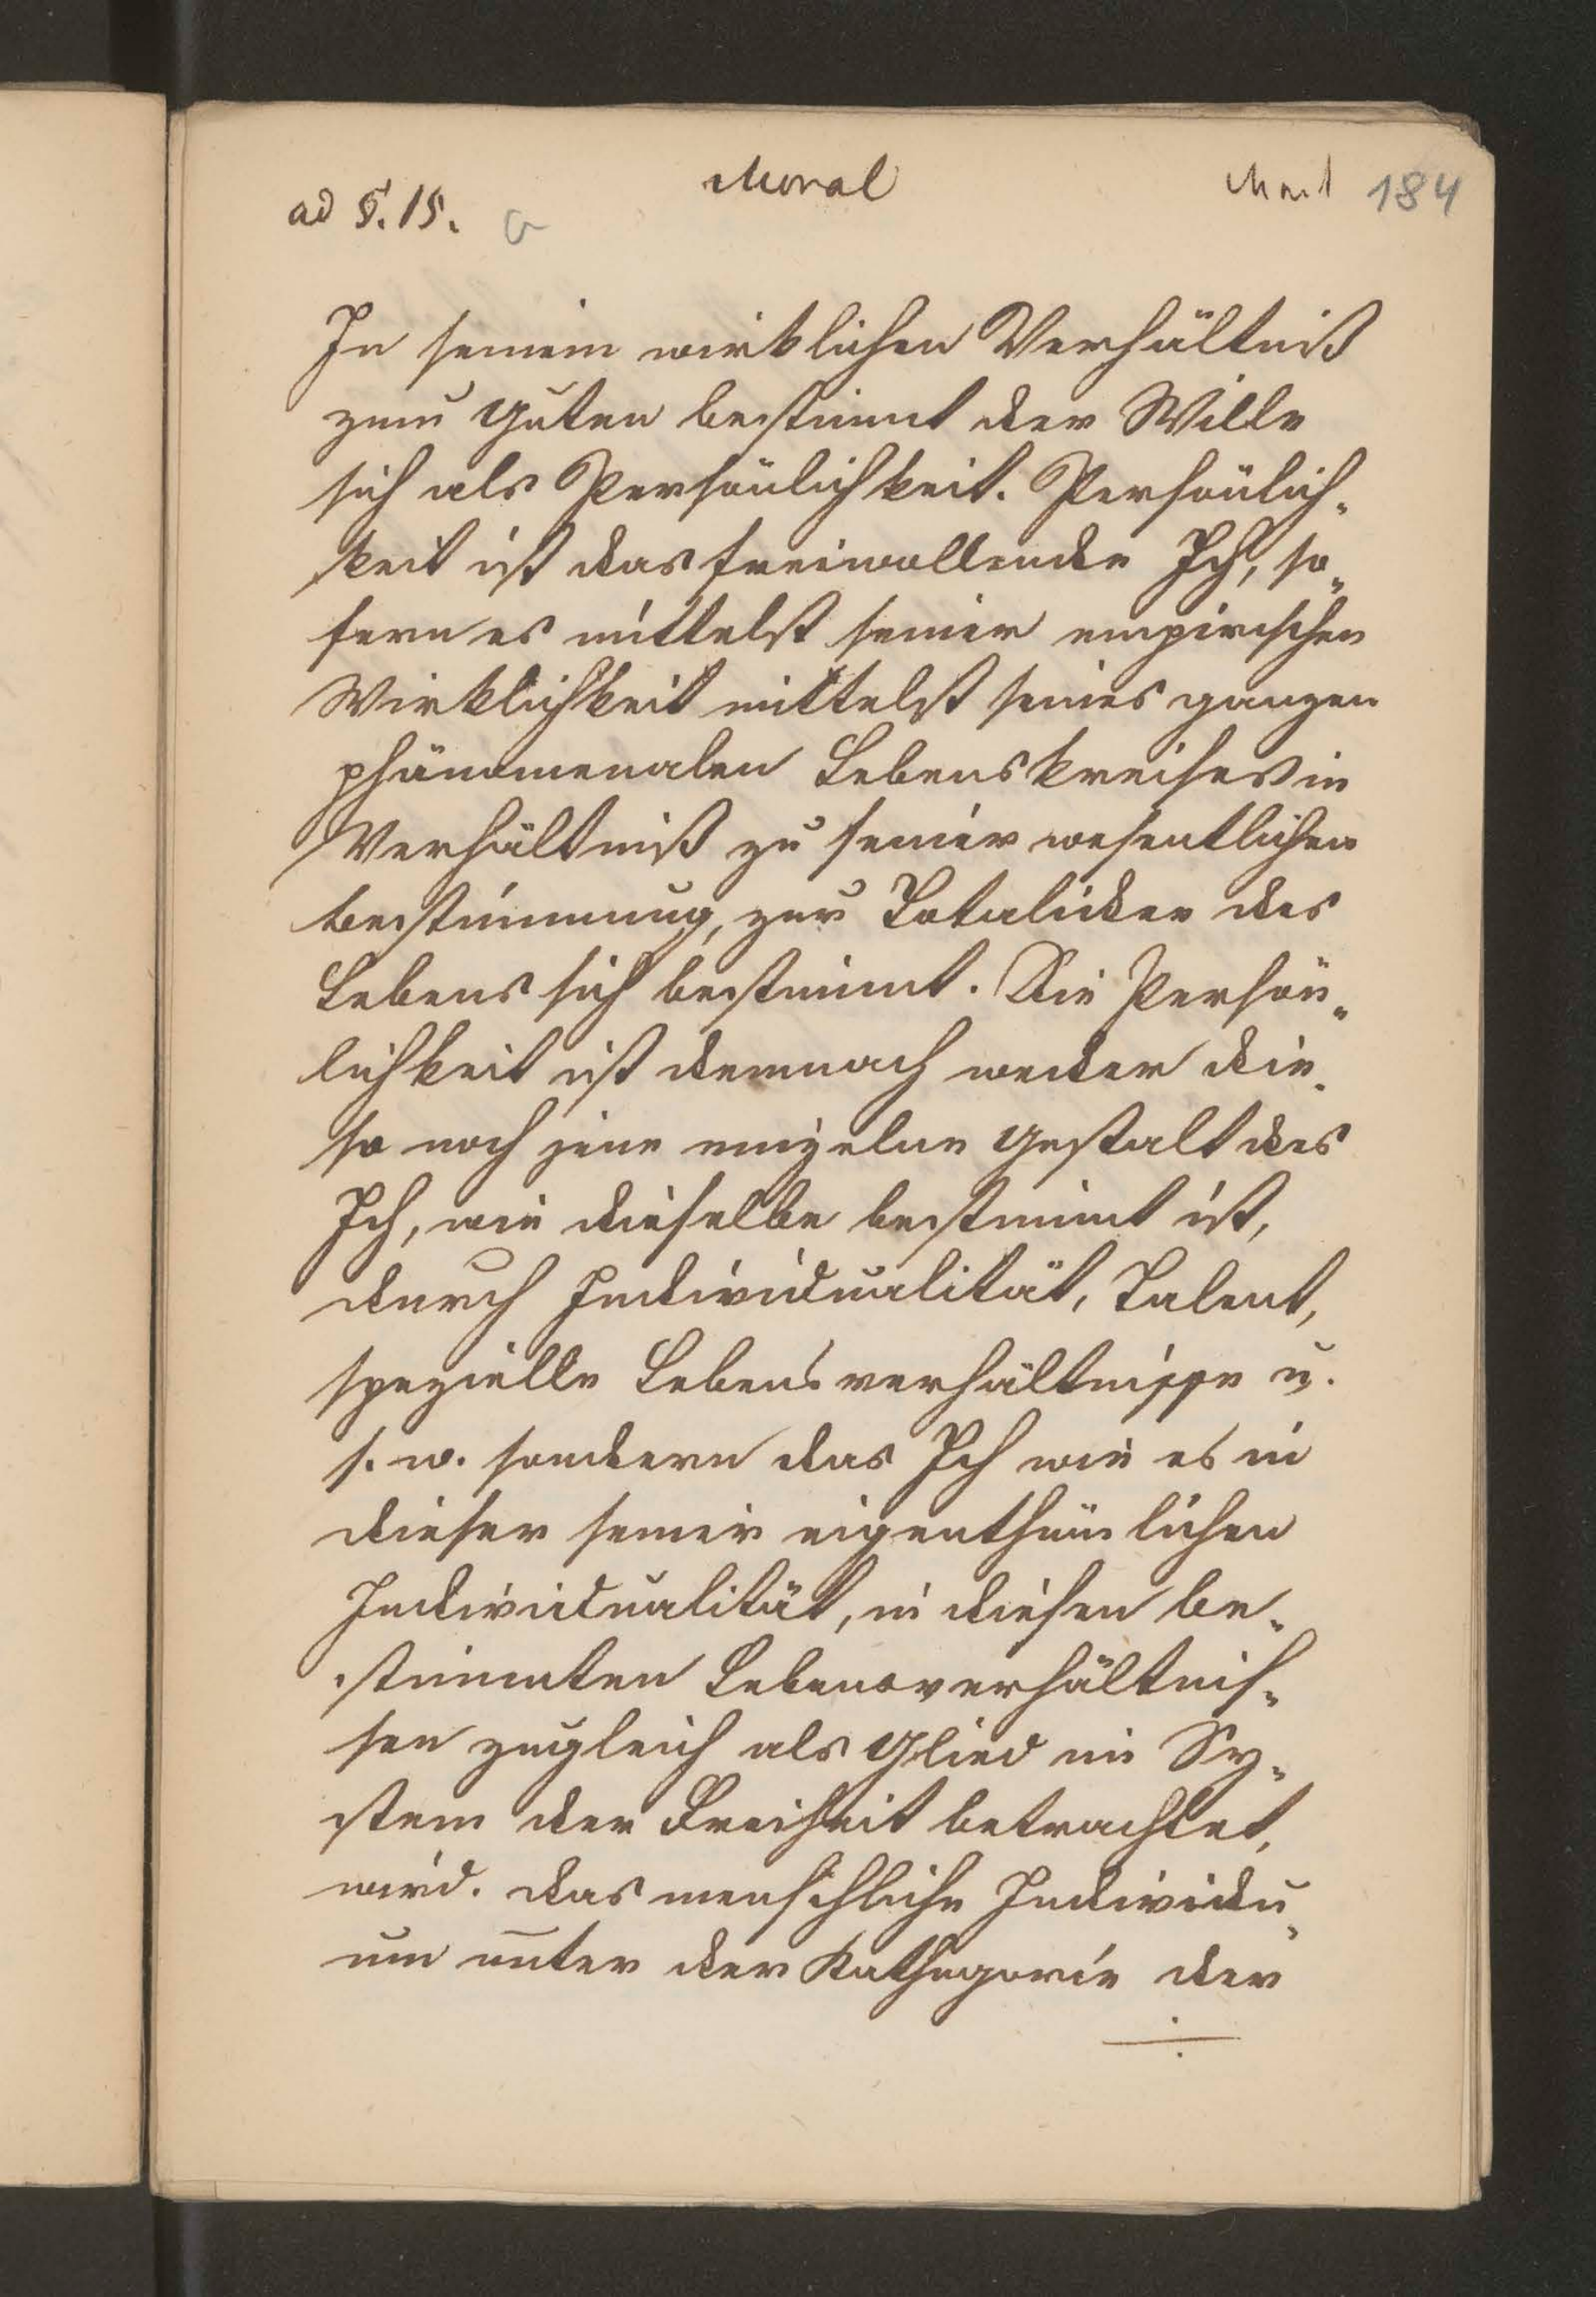 Moral
184
ad §. 15. a
In seinem wirklichen Verhältniß
zum Guten bestimmt der Wille
sich als Persönlichkeit. Persönlich-
keit ist das freiwollende Ich, so-
fern es mittelst seiner empirischen
Wirklichkeit mittelst seines ganzen
phänomenalen Lebenskreises in
Verhältniß zu seiner wesentlichen
Bestimmung, zur Totalidee des
Lebens sich bestimmt. Die Persön-
lichkeit ist demnach weder die-
se noch jene einzelne Gestalt des
Ich, wie dieselbe bestimmt ist,
durch Individualität, Talent,
spezielle Lebensverhältnisse u.
s. w. sondern das Ich wie es in
dieser seiner eigenthümlichen
Individualität, in diesen be-
stimmten Lebensverhältnis-
sen zugleich als Glied im Sy-
stem der Freiheit betrachtet,
wird. das menschliche Individu-
um unter der Kathegorie der